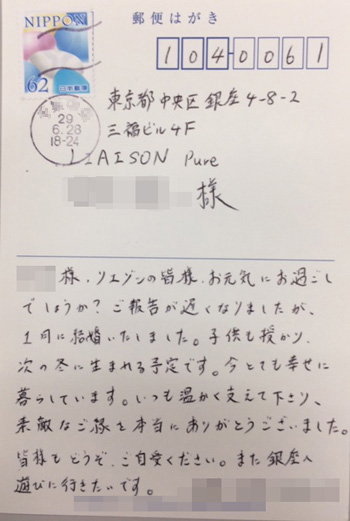 NIPPON
62
日本郵便
29
6.28
18-24
郵便はがき
1040061
東京都中央区銀座4-8-2
三福ビル4F
LIAISON Pure
様
様、リエゾンの皆様、お元気にお過ごし
でしょうか?ご報告が遅くなりましたが、
1月に結婚いたしました。子供も授かり、
次の冬に生まれる予定です。今とても幸せに
暮らしています。いつも温かく支えて下さり、
素敵なご縁を本当にありがとうございました。
皆様もどうぞ、ご自愛ください。また銀座へ
遊びに行きたいです。